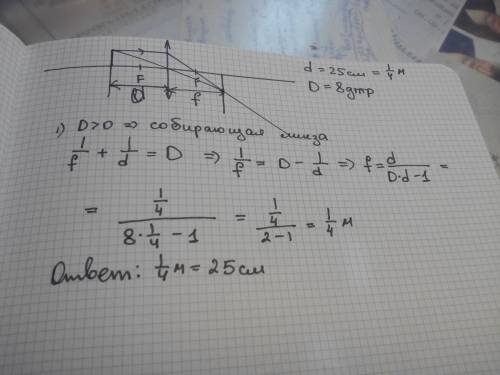 d = 25 см = 1/4 м
D = 8 дтр
F F
D f
1) D>0 ⇒ собирающая линза
1/f + 1/d = D ⇒ 1/f = D - 1/d ⇒ f = d/(D·d-1) =
= (1/4)/(8·1/4 - 1) = (1/4)/(2-1) = 1/4 м
Ответ: 1/4 м = 25 см